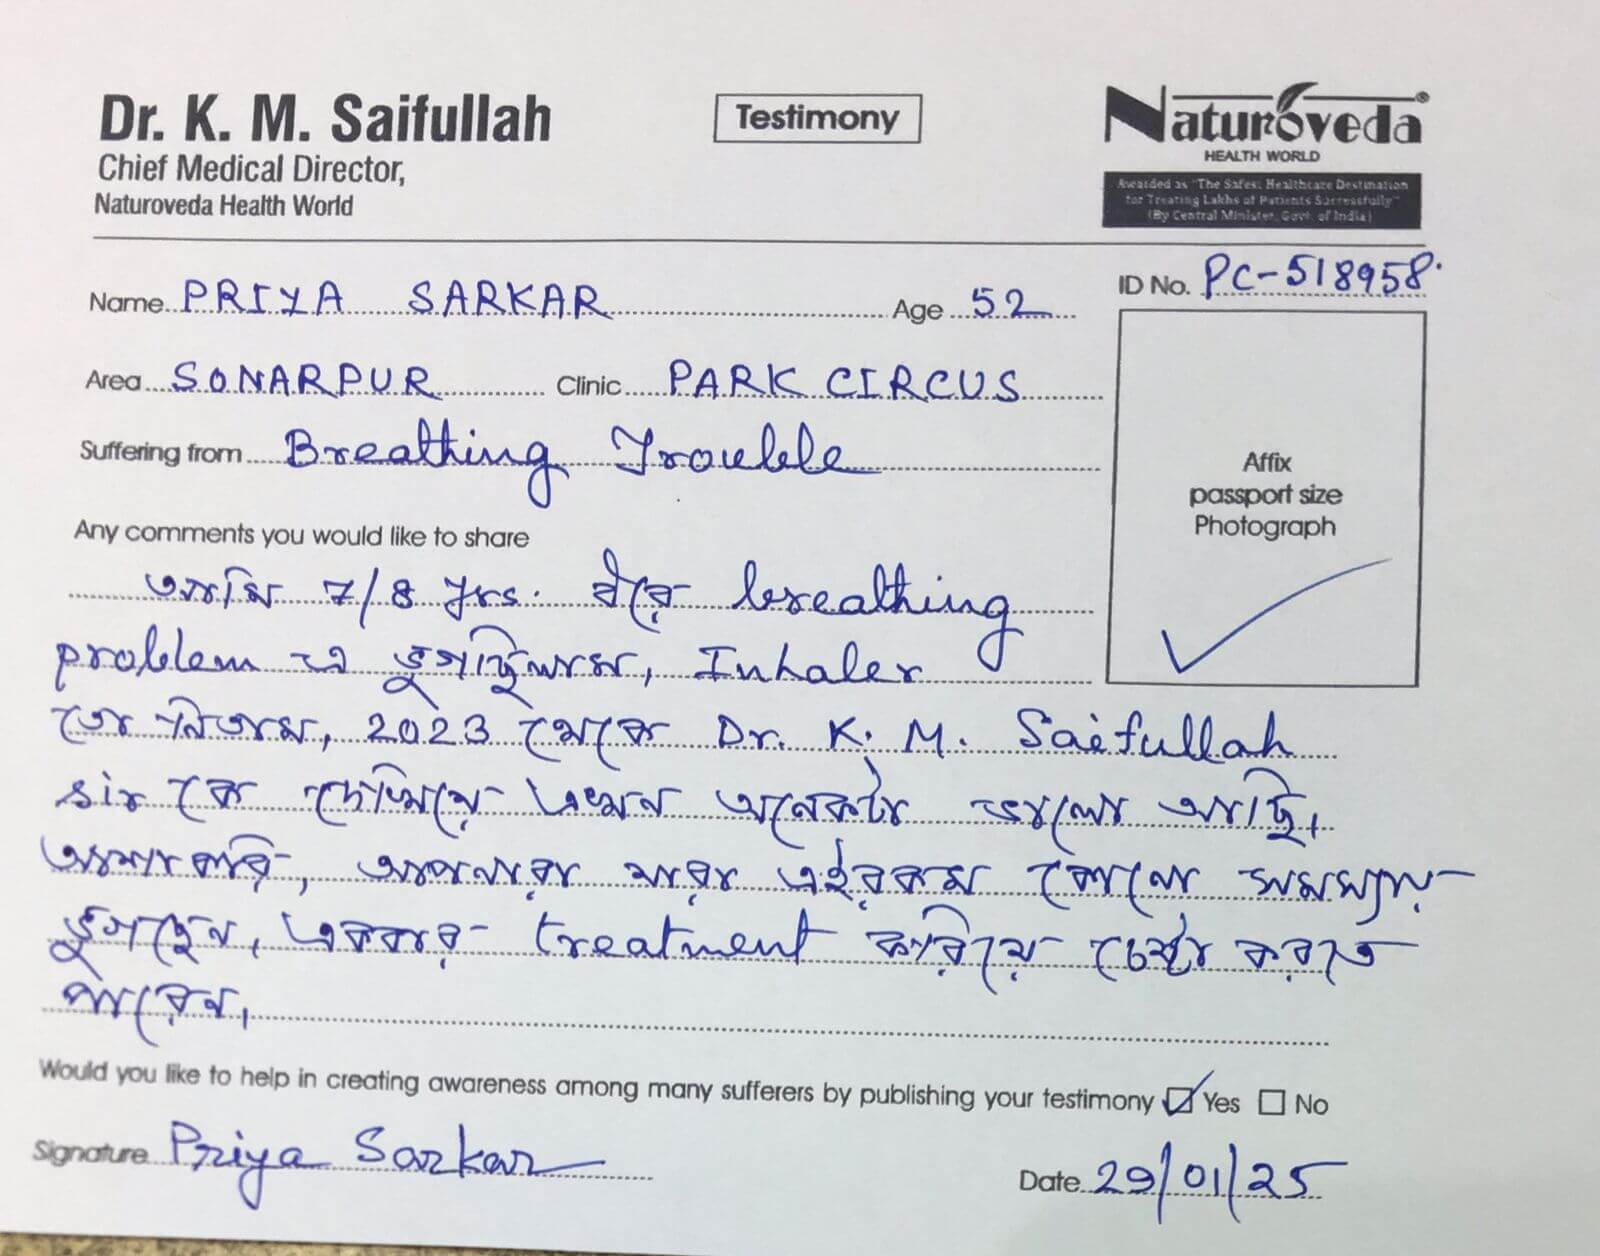 Dr. K. M. Saifullah
Chief Medical Director,
Naturoveda Health World
Testimony
Naturoveda®
HEALTH WORLD
Awarded as "The Safest Healthcare Destination
for Treating Lakhs of Patients Successfully"
(By Central Minister, Govt. of India)
ID No. PC-518958.
Name PRIYA SARKAR Age 52
Area SONARPUR Clinic PARK CIRCUS
Suffering from Breathing Trouble
Affix
passport size
Photograph
Any comments you would like to share
আমি 7/8 yrs. ধরে breathing
problem এ ভুগছিলাম, Inhaler
ও নিতাম, 2023 থেকে Dr. K. M. Saifullah
sir কে দেখিয়ে এখন অনেকটা ভালো আছি।
আশা করি, আপনারা যারা এইরকম কোনো সমস্যায়
ভুগছেন, একবার treatment করিয়ে চেষ্টা করতে
পারেন।
Would you like to help in creating awareness among many sufferers by publishing your testimony Yes No
Signature Priya Sarkar
Date 29/01/25